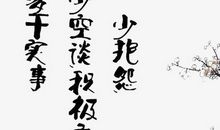 少抱怨
少空谈积极
多干实事